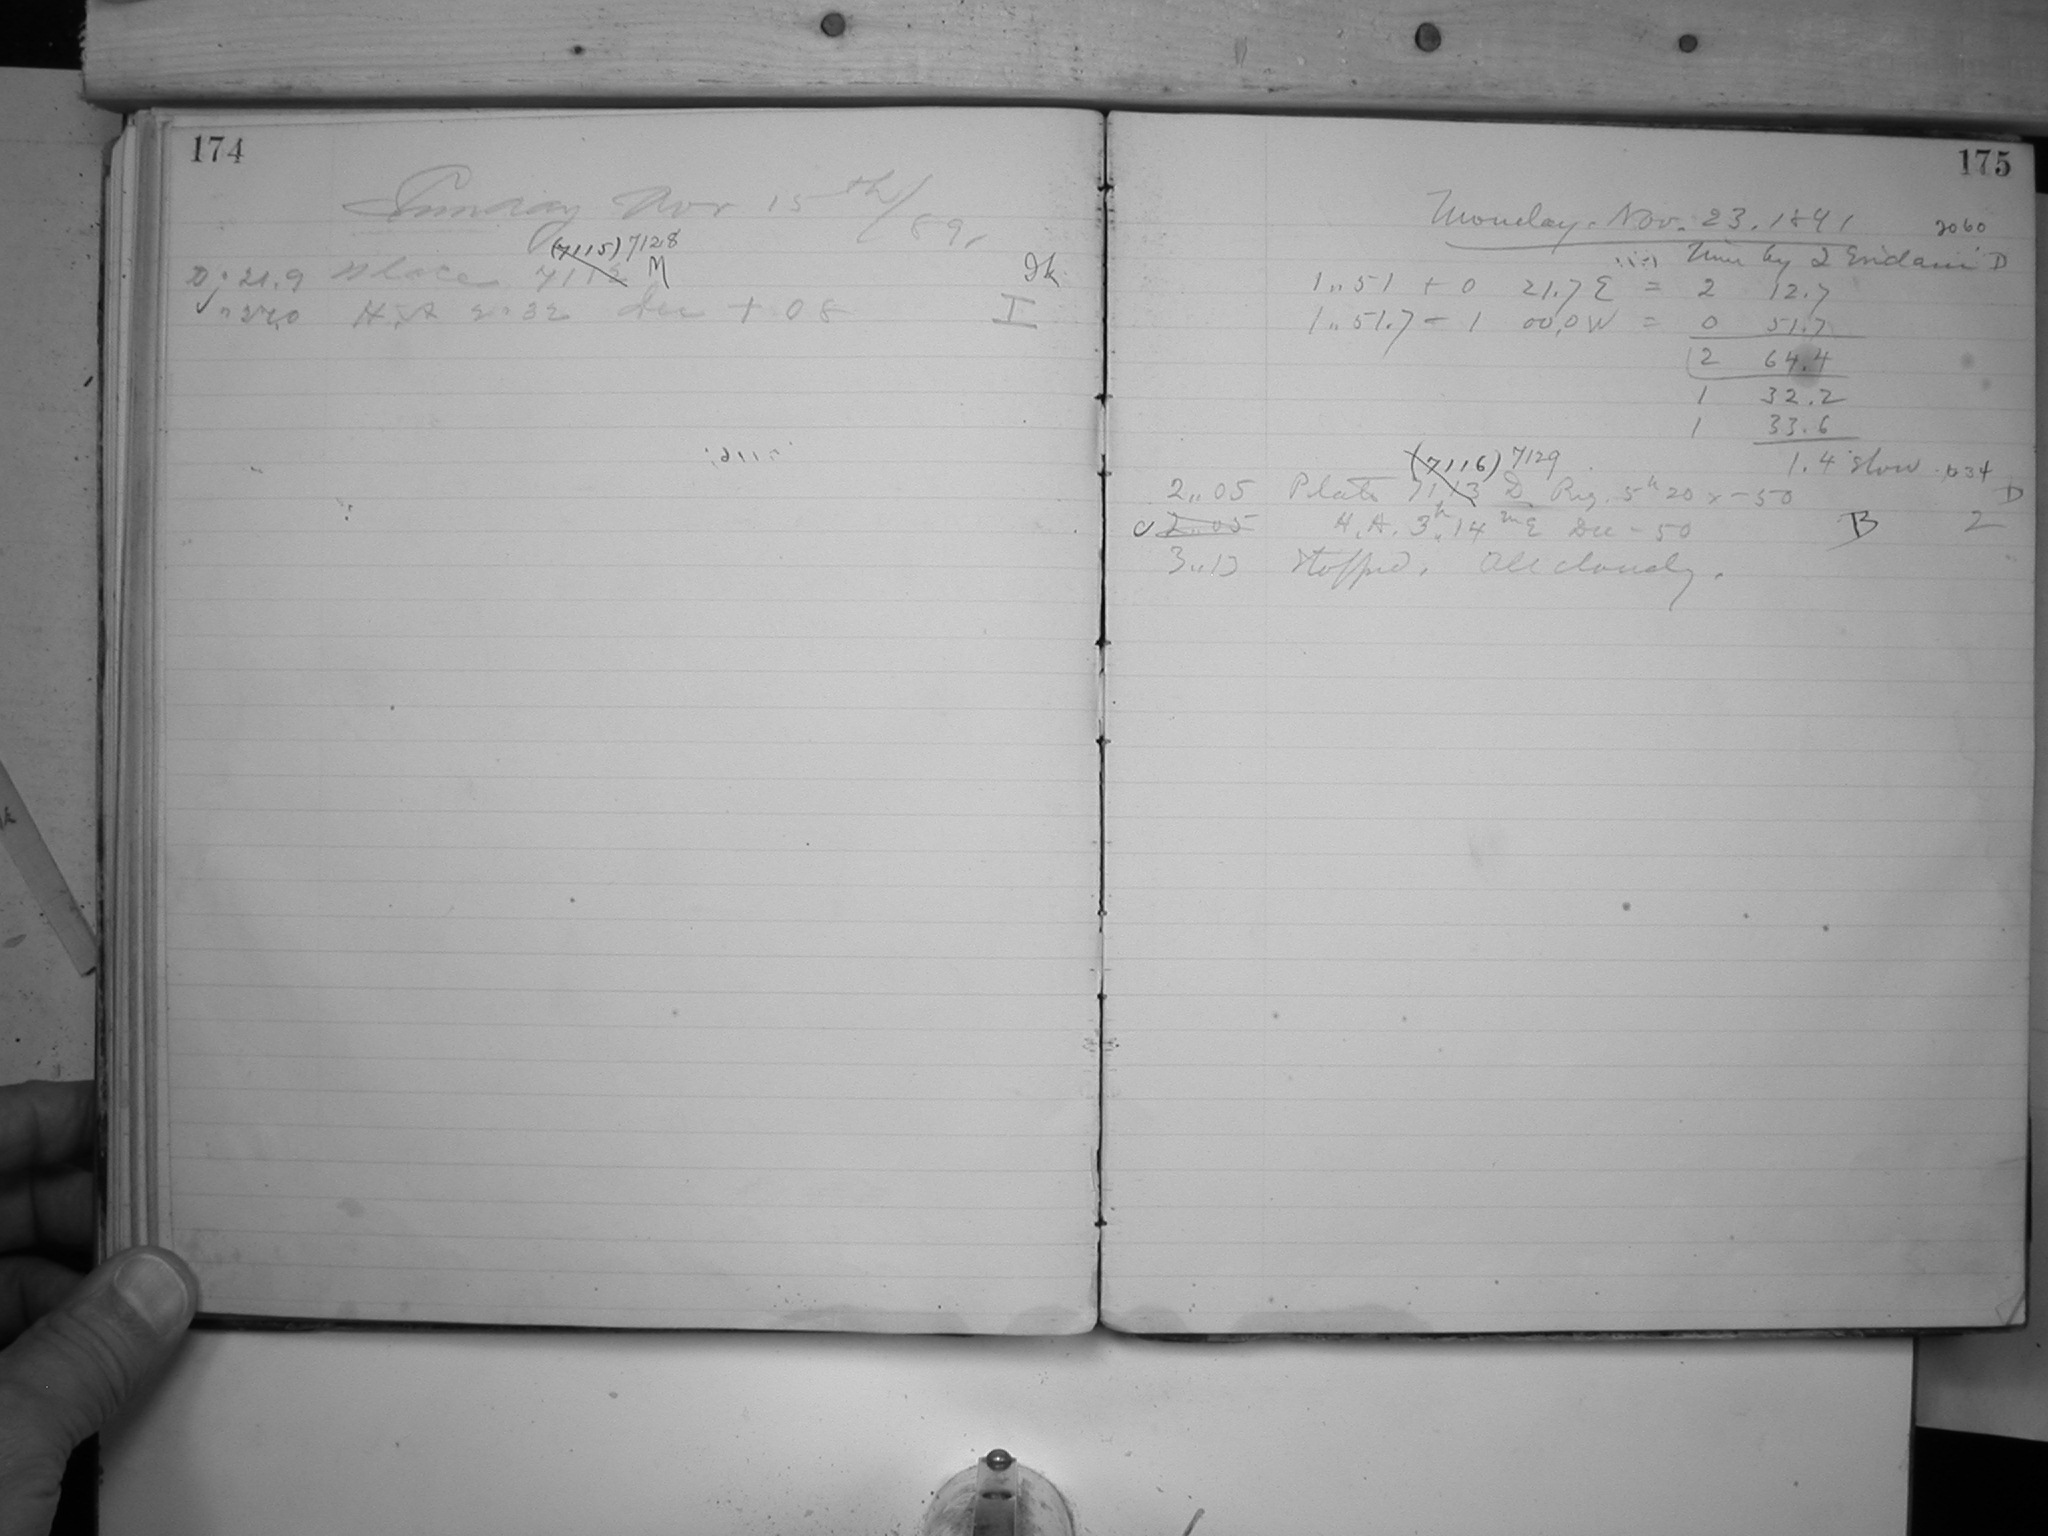 174
Sunday Nov 15th/89,
(7115) 7128
21.9 7113 M Jk
H.A 2:32 Dec + 08 I
175
Monday. Nov. 23. 1891 2060
Time by 2 Eridani D
1,,51 + 0 21.7 E = 2 12.7
1,,51.7 - 1 00.0 W = 0 51.7
2 64.4
1 32.2
1 33.6
1.4 slow
(7116) 7129
2,,05 Plate 7113 D Reg. 5h 20 x -50 D
2,,05 H.A. 3h,,14m E Dec - 50 B 2
3,,13 Stopped. All cloudy.